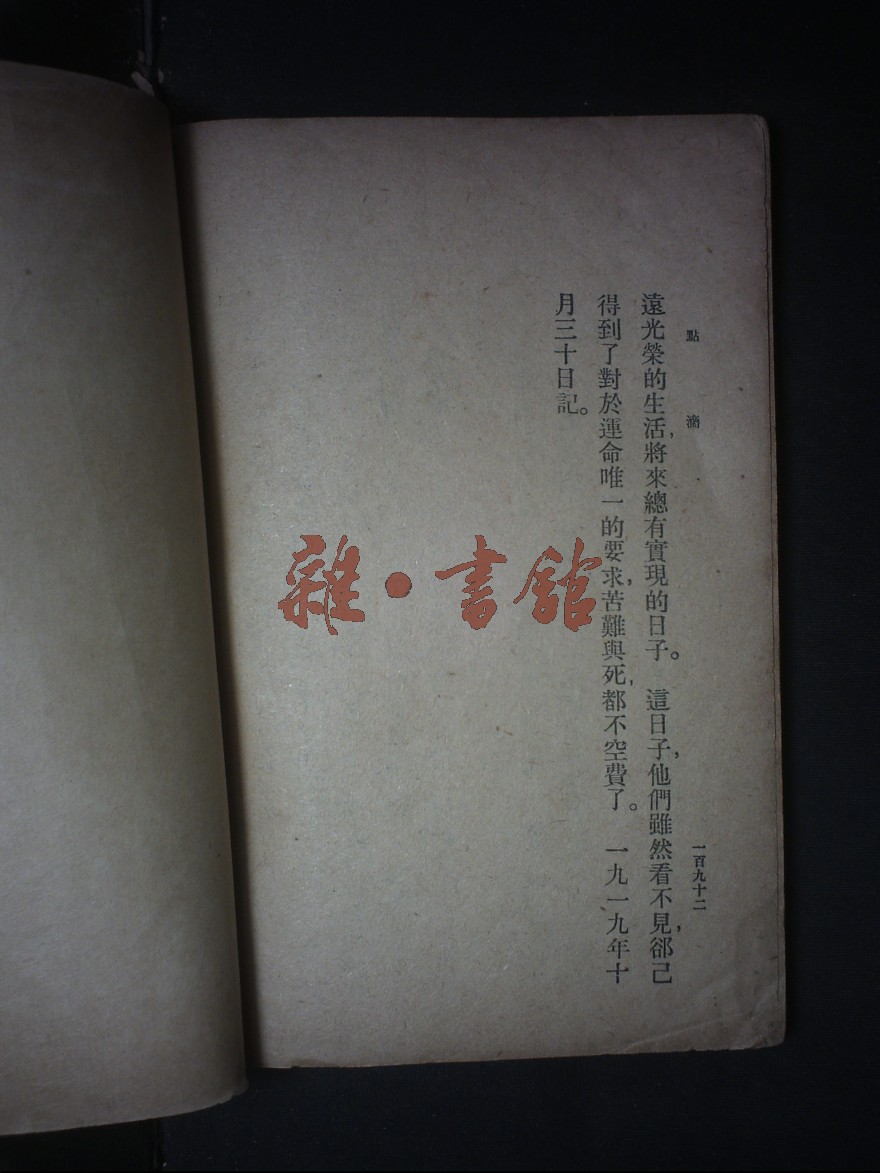 點滴
一百九十二
遠光榮的生活,將來總有實現的日子。這日子,他們雖然看不見,郤己
得到了對於運命唯一的要求,苦難與死,都不空費了。一九一九年十
月三十日記。
雜·書館